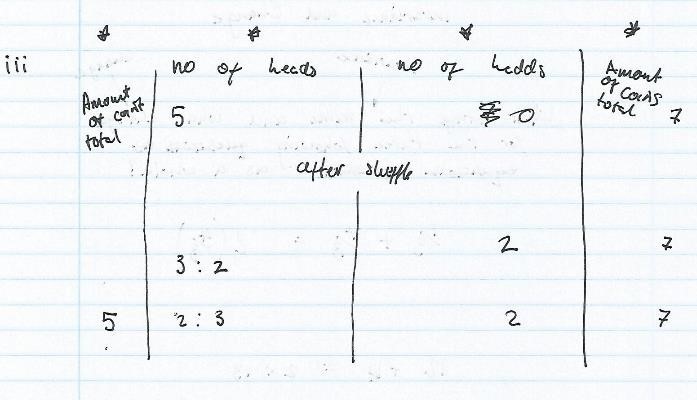 iii
no of heads
no of hedds
Amount of coins total
Amount of coins total
5
0.
7
after shuffle
3 : 2
2
7
5
2 : 3
2
7